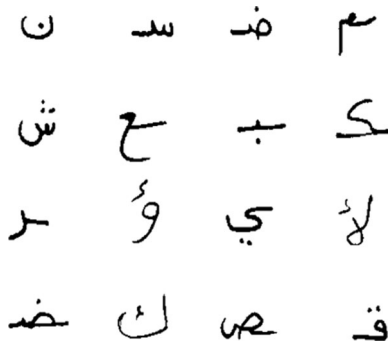 م ضـ ـسـ ن
ـكـ ـبـ ـع ش
لأ ي ؤ ـر
قـ ـصـ ك ـضـ